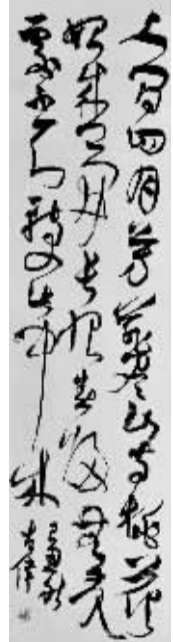 人間四月芳菲盡山寺桃花
始盛開長恨春歸無覓
處不知轉入此中來